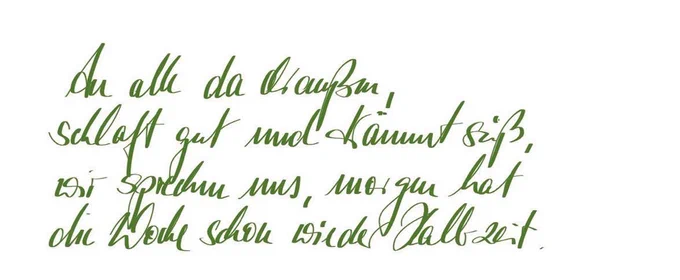 An alle da draußen,
schlaft gut und träumt süß,
wir sprechen uns, morgen hat
die Woche schon wieder Halbzeit.